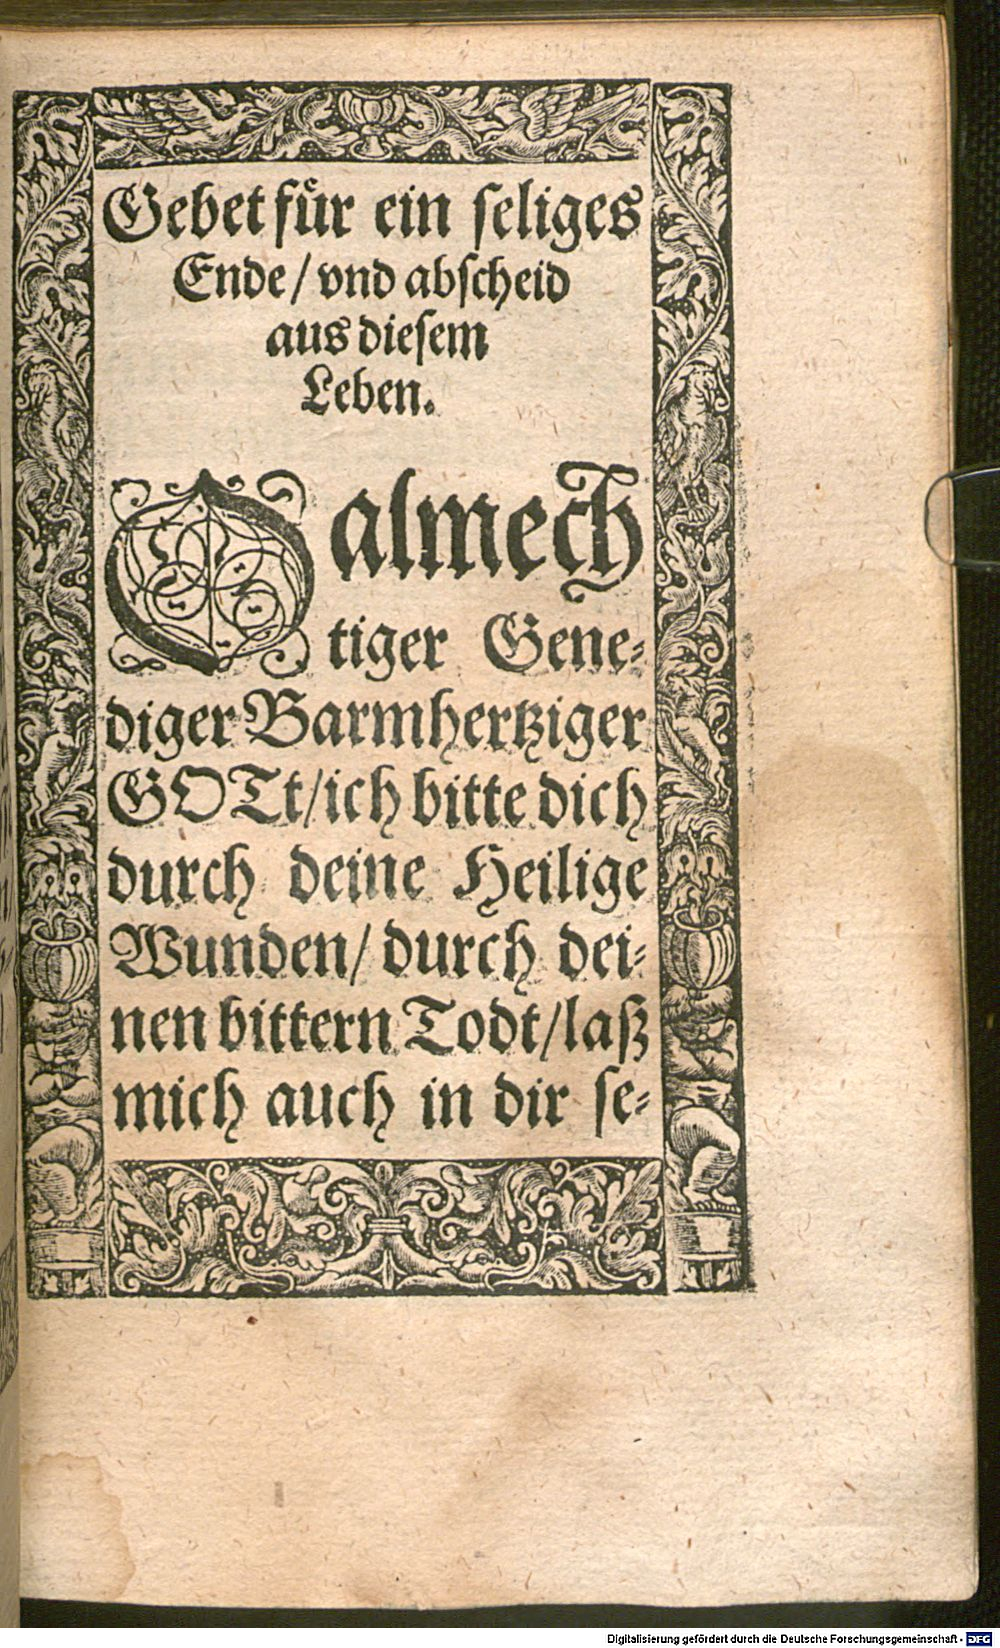 Gebet fuͤr ein ſeliges
Ende / vnd abſcheid
aus dieſem
Leben.
O almech
tiger Gene⸗
diger Barmhertziger
GOTt / ich bitte dich
durch deine Heilige
Wunden / durch dei⸗
nen bittern Todt / laß
mich auch in dir ſe⸗
Digitalisierung gefördert durch die Deutsche Forschungsgemeinschaft - DFG